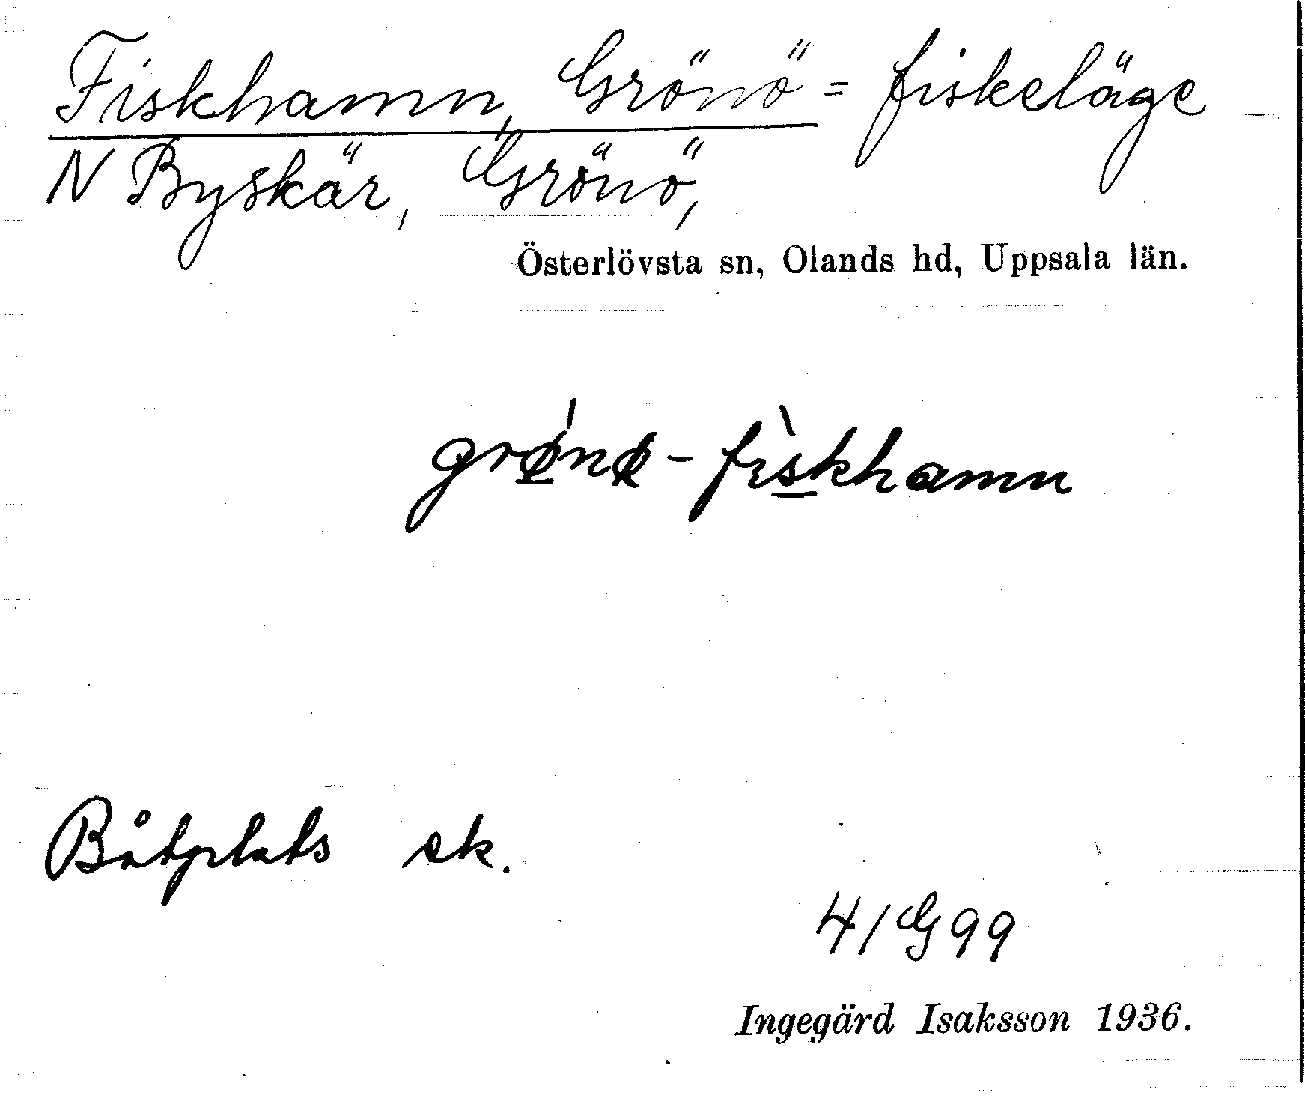 Fiskhamn, Grönö = fiskeläge
N Byskär, Grönö,
Österlövsta sn, Olands hd, Uppsala län.
grø̀nø-fìskhamn
Båtplats ek.
4/G99
Ingegärd Isaksson 1936.